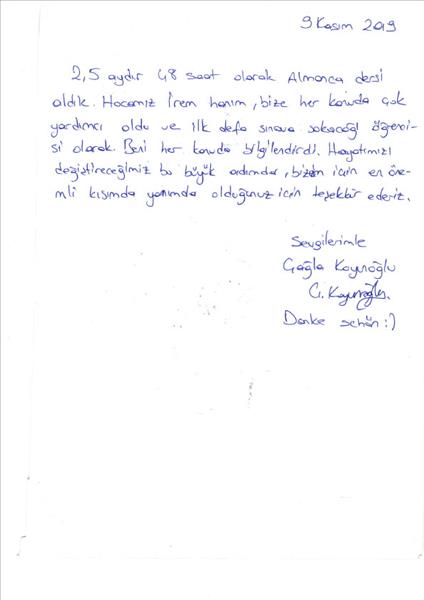 9 Kasım 2019
2,5 aydır 48 saat olarak Almanca dersi
aldık. Hocamız İrem hanım, bize her konuda çok
yardımcı oldu ve ilk defa sınava sokacağı öğrenci-
si olarak. Beni her konuda bilgilendirdi. Hayatımızı
değiştireceğimiz bu büyük adımda, bizim için en öne-
mli kısımda yanımda olduğunuz için teşekkür ederiz.
Sevgilerimle
Çağla Koyunoğlu
Ç. Koyunoğlu.
Danke schön :)